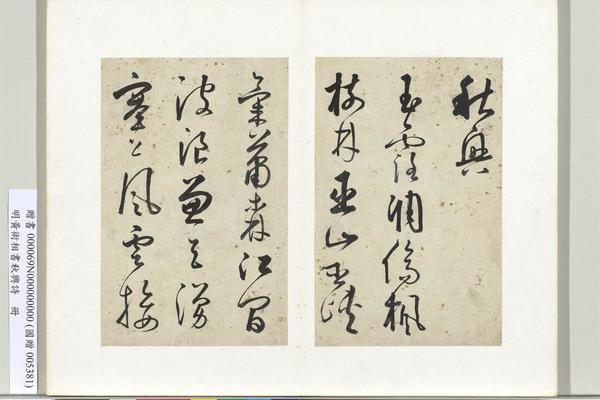 秋興
玉露凋傷楓
樹林巫山巫峽
氣蕭森江間
波浪兼天湧
塞上風雲接
贈書 000069N000000000 (國贈 005381)
明黃術相書秋興詩 冊